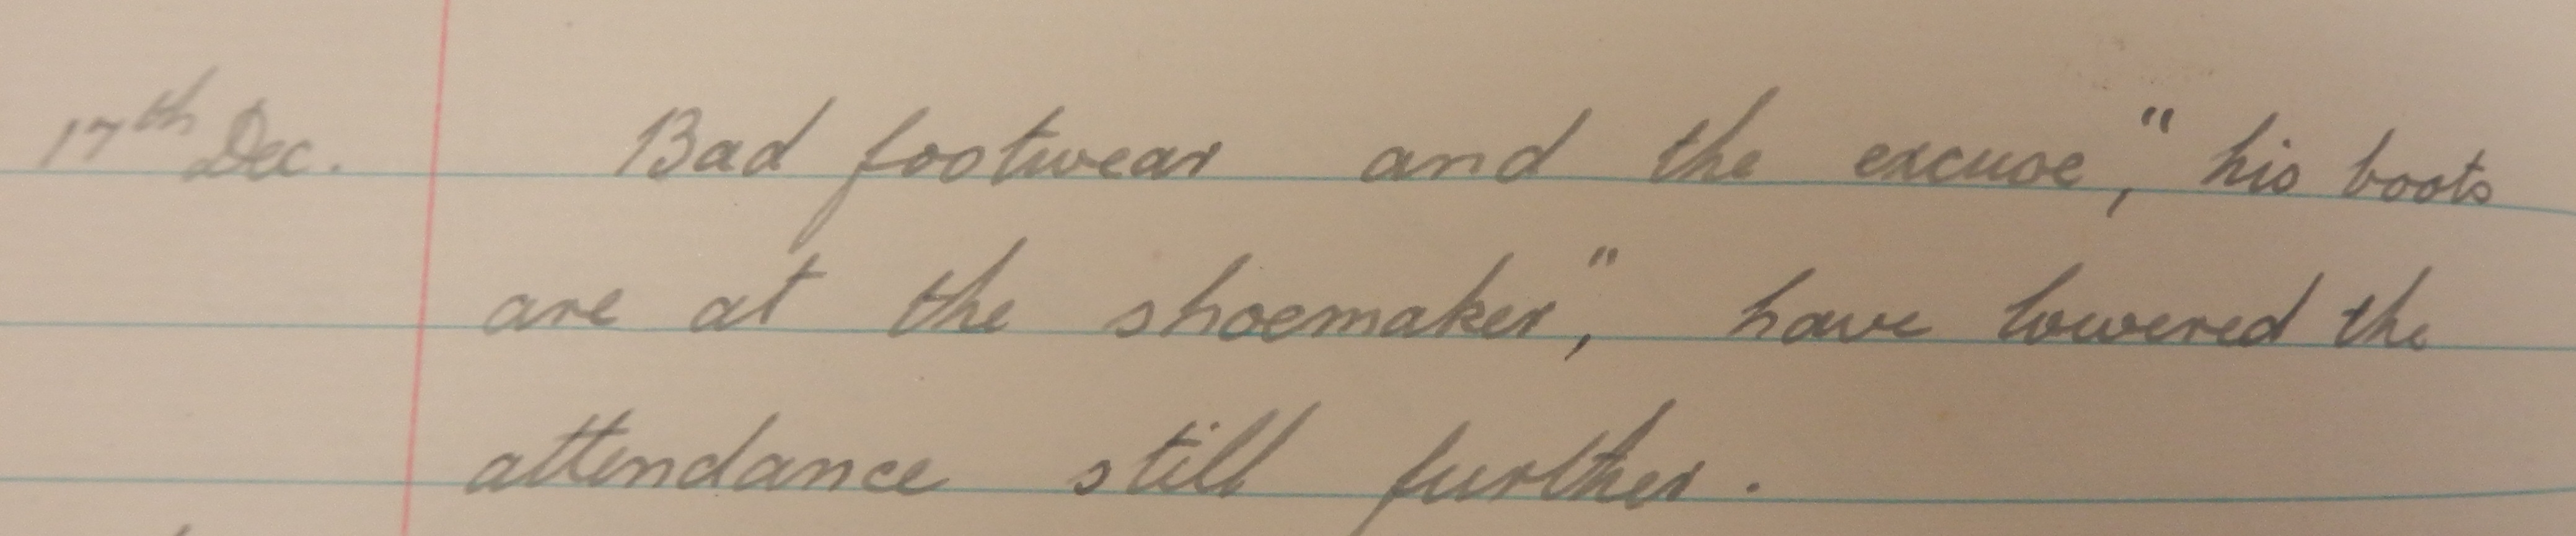 17th Dec. Bad footwear and the excuse, "his boots
are at the shoemaker", have lowered the
attendance still further.